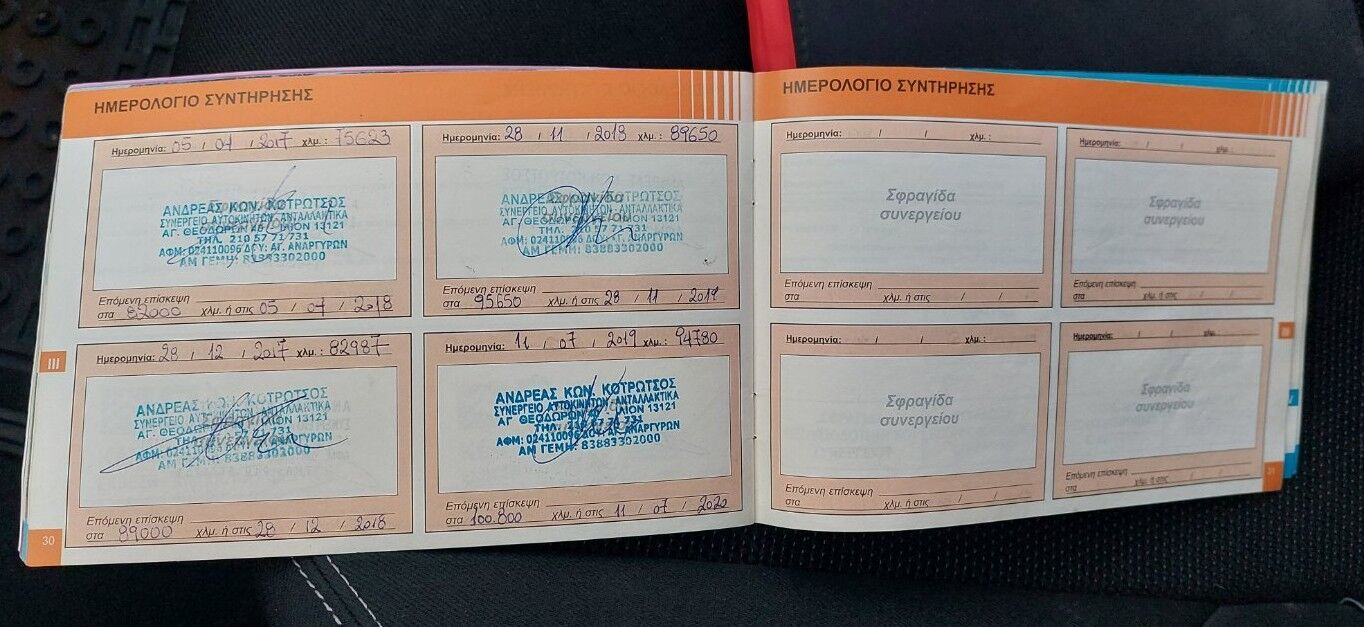 ΗΜΕΡΟΛΟΓΙΟ ΣΥΝΤΗΡΗΣΗΣ
Ημερομηνία: 05 / 07 / 2017 χλμ. : 75623
ΑΝΔΡΕΑΣ ΚΩΝ. ΚΟΤΡΩΤΣΟΣ
ΣΥΝΕΡΓΕΙΟ ΑΥΤΟΚΙΝΗΤΩΝ-ΑΝΤΑΛΛΑΚΤΙΚΑ
ΑΓ. ΘΕΟΔΩΡΩΝ ΙΛΙΟΝ 13121
ΤΗΛ. 210 57 71 731
ΑΦΜ: 024110096 ΔΟΥ: ΑΓ. ΑΝΑΡΓΥΡΩΝ
ΑΜ ΓΕΜΗ: 83883302000
Επόμενη επίσκεψη
στα 82000 χλμ. ή στις 05 / 07 / 2018
Ημερομηνία: 28 / 12 / 2017 χλμ. : 82987
ΑΝΔΡΕΑΣ ΚΩΝ. ΚΟΤΡΩΤΣΟΣ
ΣΥΝΕΡΓΕΙΟ ΑΥΤΟΚΙΝΗΤΩΝ-ΑΝΤΑΛΛΑΚΤΙΚΑ
ΑΓ. ΘΕΟΔΩΡΩΝ ΙΛΙΟΝ 13121
ΤΗΛ. 210 57 71 731
ΑΦΜ: 024110096 ΔΟΥ: ΑΓ. ΑΝΑΡΓΥΡΩΝ
ΑΜ ΓΕΜΗ: 83883302000
Επόμενη επίσκεψη
στα 89000 χλμ. ή στις 28 / 12 / 2018
30
III
Ημερομηνία: 28 / 11 / 2018 χλμ. : 89650
ΑΝΔΡΕΑΣ ΚΩΝ. ΚΟΤΡΩΤΣΟΣ
ΣΥΝΕΡΓΕΙΟ ΑΥΤΟΚΙΝΗΤΩΝ-ΑΝΤΑΛΛΑΚΤΙΚΑ
ΑΓ. ΘΕΟΔΩΡΩΝ ΙΛΙΟΝ 13121
ΤΗΛ. 210 57 71 731
ΑΦΜ: 024110096 ΔΟΥ: ΑΓ. ΑΝΑΡΓΥΡΩΝ
ΑΜ ΓΕΜΗ: 83883302000
Επόμενη επίσκεψη
στα 95650 χλμ. ή στις 28 / 11 / 2019
Ημερομηνία: 11 / 07 / 2019 χλμ. : 94780
ΑΝΔΡΕΑΣ ΚΩΝ. ΚΟΤΡΩΤΣΟΣ
ΣΥΝΕΡΓΕΙΟ ΑΥΤΟΚΙΝΗΤΩΝ-ΑΝΤΑΛΛΑΚΤΙΚΑ
ΑΓ. ΘΕΟΔΩΡΩΝ ΙΛΙΟΝ 13121
ΤΗΛ. 210 57 71 731
ΑΦΜ: 024110096 ΔΟΥ: ΑΓ. ΑΝΑΡΓΥΡΩΝ
ΑΜ ΓΕΜΗ: 83883302000
Επόμενη επίσκεψη
στα 100.800 χλμ. ή στις 11 / 07 / 2020
ΗΜΕΡΟΛΟΓΙΟ ΣΥΝΤΗΡΗΣΗΣ
Ημερομηνία: / / χλμ. :
Σφραγίδα
συνεργείου
Επόμενη επίσκεψη
στα χλμ. ή στις / /
Ημερομηνία: / / χλμ. :
Σφραγίδα
συνεργείου
Επόμενη επίσκεψη
στα χλμ. ή στις / /
Ημερομηνία: / / χλμ. :
Σφραγίδα
συνεργείου
Επόμενη επίσκεψη
στα χλμ. ή στις / /
Ημερομηνία: / / χλμ. :
Σφραγίδα
συνεργείου
Επόμενη επίσκεψη
στα χλμ. ή στις / /
III
31